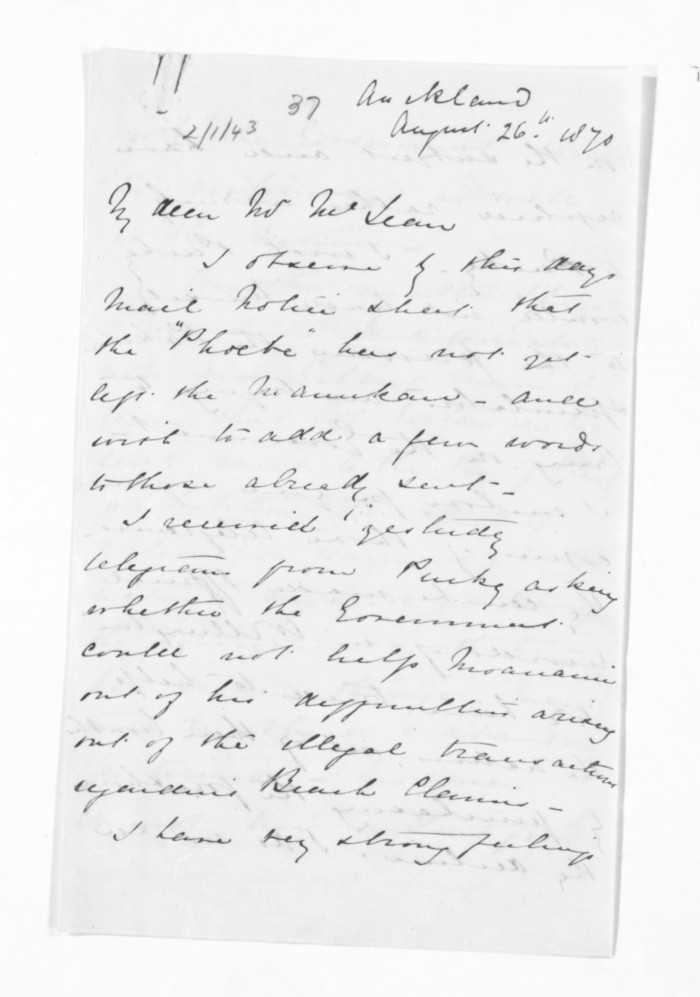 37
Auckland
2/1/43
August 26th 1870
My dear Mr McLean
I observe by this days
Mail Notice sheet that
the "Phoebe" has not yet
left the Manukau - and
wish to add a few words
to those already sent -
I received yesterday
telegrams from Puckey asking
whether the Government
could not help Moanaini
out of his difficulties arising
out of the illegal transactions
regarding Beach Claims -
I have very strong feelings